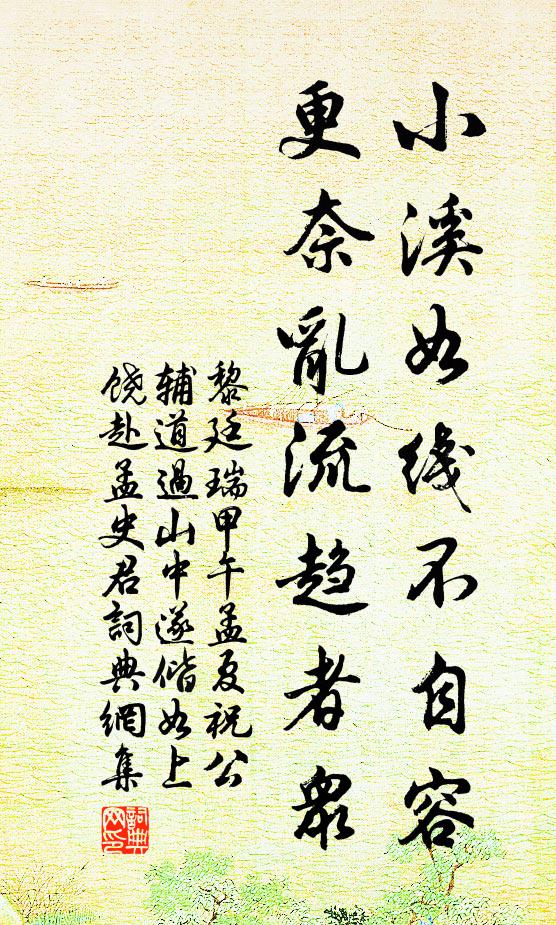 小溪如线不自容
更奈亂流趋者眾
黎廷瑞甲午孟夏祝公
辅道過山中遂偕如上
饶赴孟史君詞典網集
詞典
网印